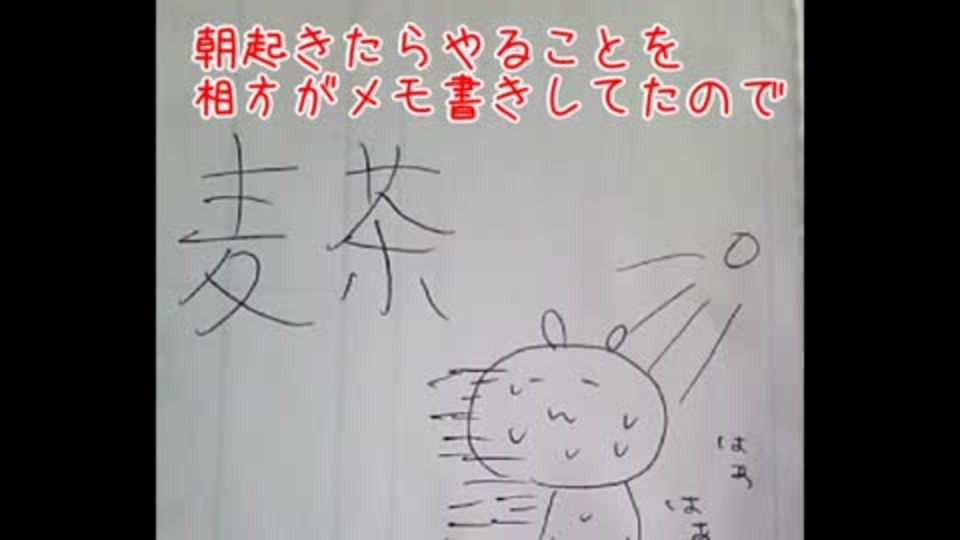 朝起きたらやることを
相方がメモ書きしてたので
麦茶
はぁ
はぁ